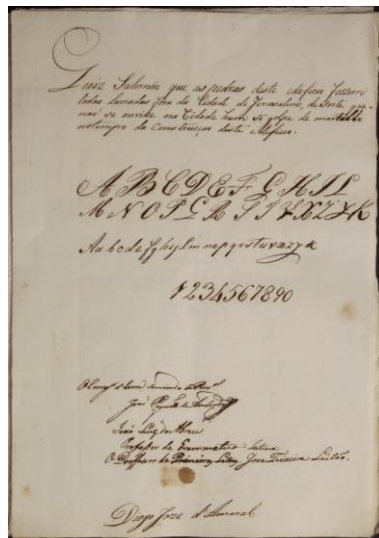 Quiz Salamão que as pedras deste edificio fossem
todas lavradas fora da Cidade de Jerusalem, de sorte que
naõ se ouvisse na Cidade hum só golpe de martello
no tempo da Construiçaõ deste
A B C D E F G H I L
M N O P Q R S T V X Z Y K
A a b c d e f g h y l m n o p q r s t u v x z y k
1 2 3 4 5 6 7 8 9 0
José
José Luiz de Abreu
Professor de Grammatica Latina
O Professor de Primeiras Letras Joze Teixeira Leitaõ.
Diogo Joze d'Amaral